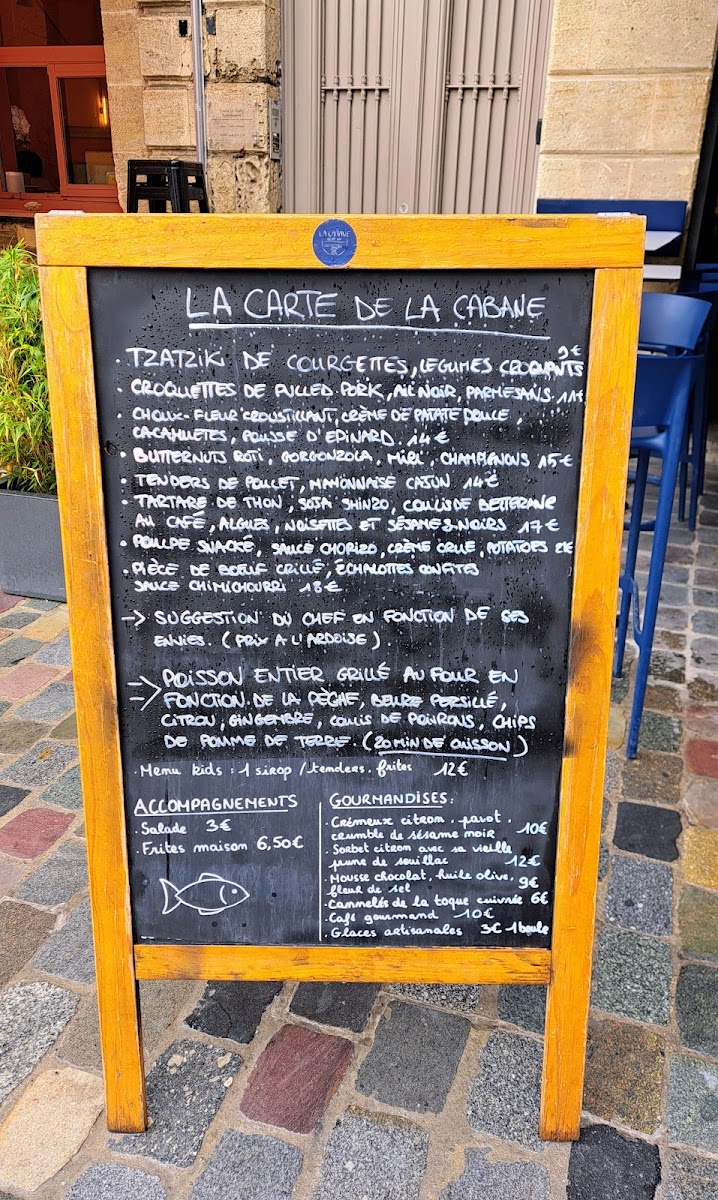 LA CABANE
LA CARTE DE LA CABANE
. TZATZIKI DE COURGETTES, LEGUMES CROQUANTS 9€
. CROQUETTES DE PULLED PORK, AIL NOIR, PARMESANS. 11€
. CHOUX-FLEUR CROUSTILLANT, CRÈME DE PATATE DOUCE,
CACAHUETES, POUSSE D'EPINARD. 14€
. BUTTERNUTS ROTI, GORGONZOLA, MIEL, CHAMPIGNONS 15€
. TENDERS DE POULET, MAYONNAISE CAJUN 14€
. TARTARE DE THON, SOJA SHINZO, COULIS DE BETTERAVE
AU CAFÉ, ALGUES, NOISETTES ET SÉSAMES NOIRS 17€
. POULPE SNACKÉ, SAUCE CHORIZO, CRÈME CRUE, POTATOES 21€
. PIÈCE DE BOEUF GRILLÉ, ÉCHALOTTES CONFITES
SAUCE CHIMICHOURRI 18€
-> SUGGESTION DU CHEF EN FONCTION DE SES
ENVIES. (PRIX A L'ARDOISE).
=> POISSON ENTIER GRILLÉ AU FOUR EN
FONCTION DE LA PÊCHE, BEURE PERSILLÉ,
CITRON, GINGEMBRE, COULIS DE POIVRONS, CHIPS
DE POMME DE TERRE. (20 MIN DE CUISSON)
. Menu kids : 1 sirop / tenders. frites 12€
ACCOMPAGNEMENTS
. Salade 3€
. Frites maison 6,50€
GOURMANDISES:
. Crémeux citron, pavot,
crumble de sésame noir 10€
. Sorbet citron avec sa vieille
prune de souillac 12€
. Mousse chocolat, huile olive,
fleur de sel 9€
. Cannelés de la toque cuivrée 6€
. Café gourmand 10€
. Glaces artisanales 3€ 1 boule